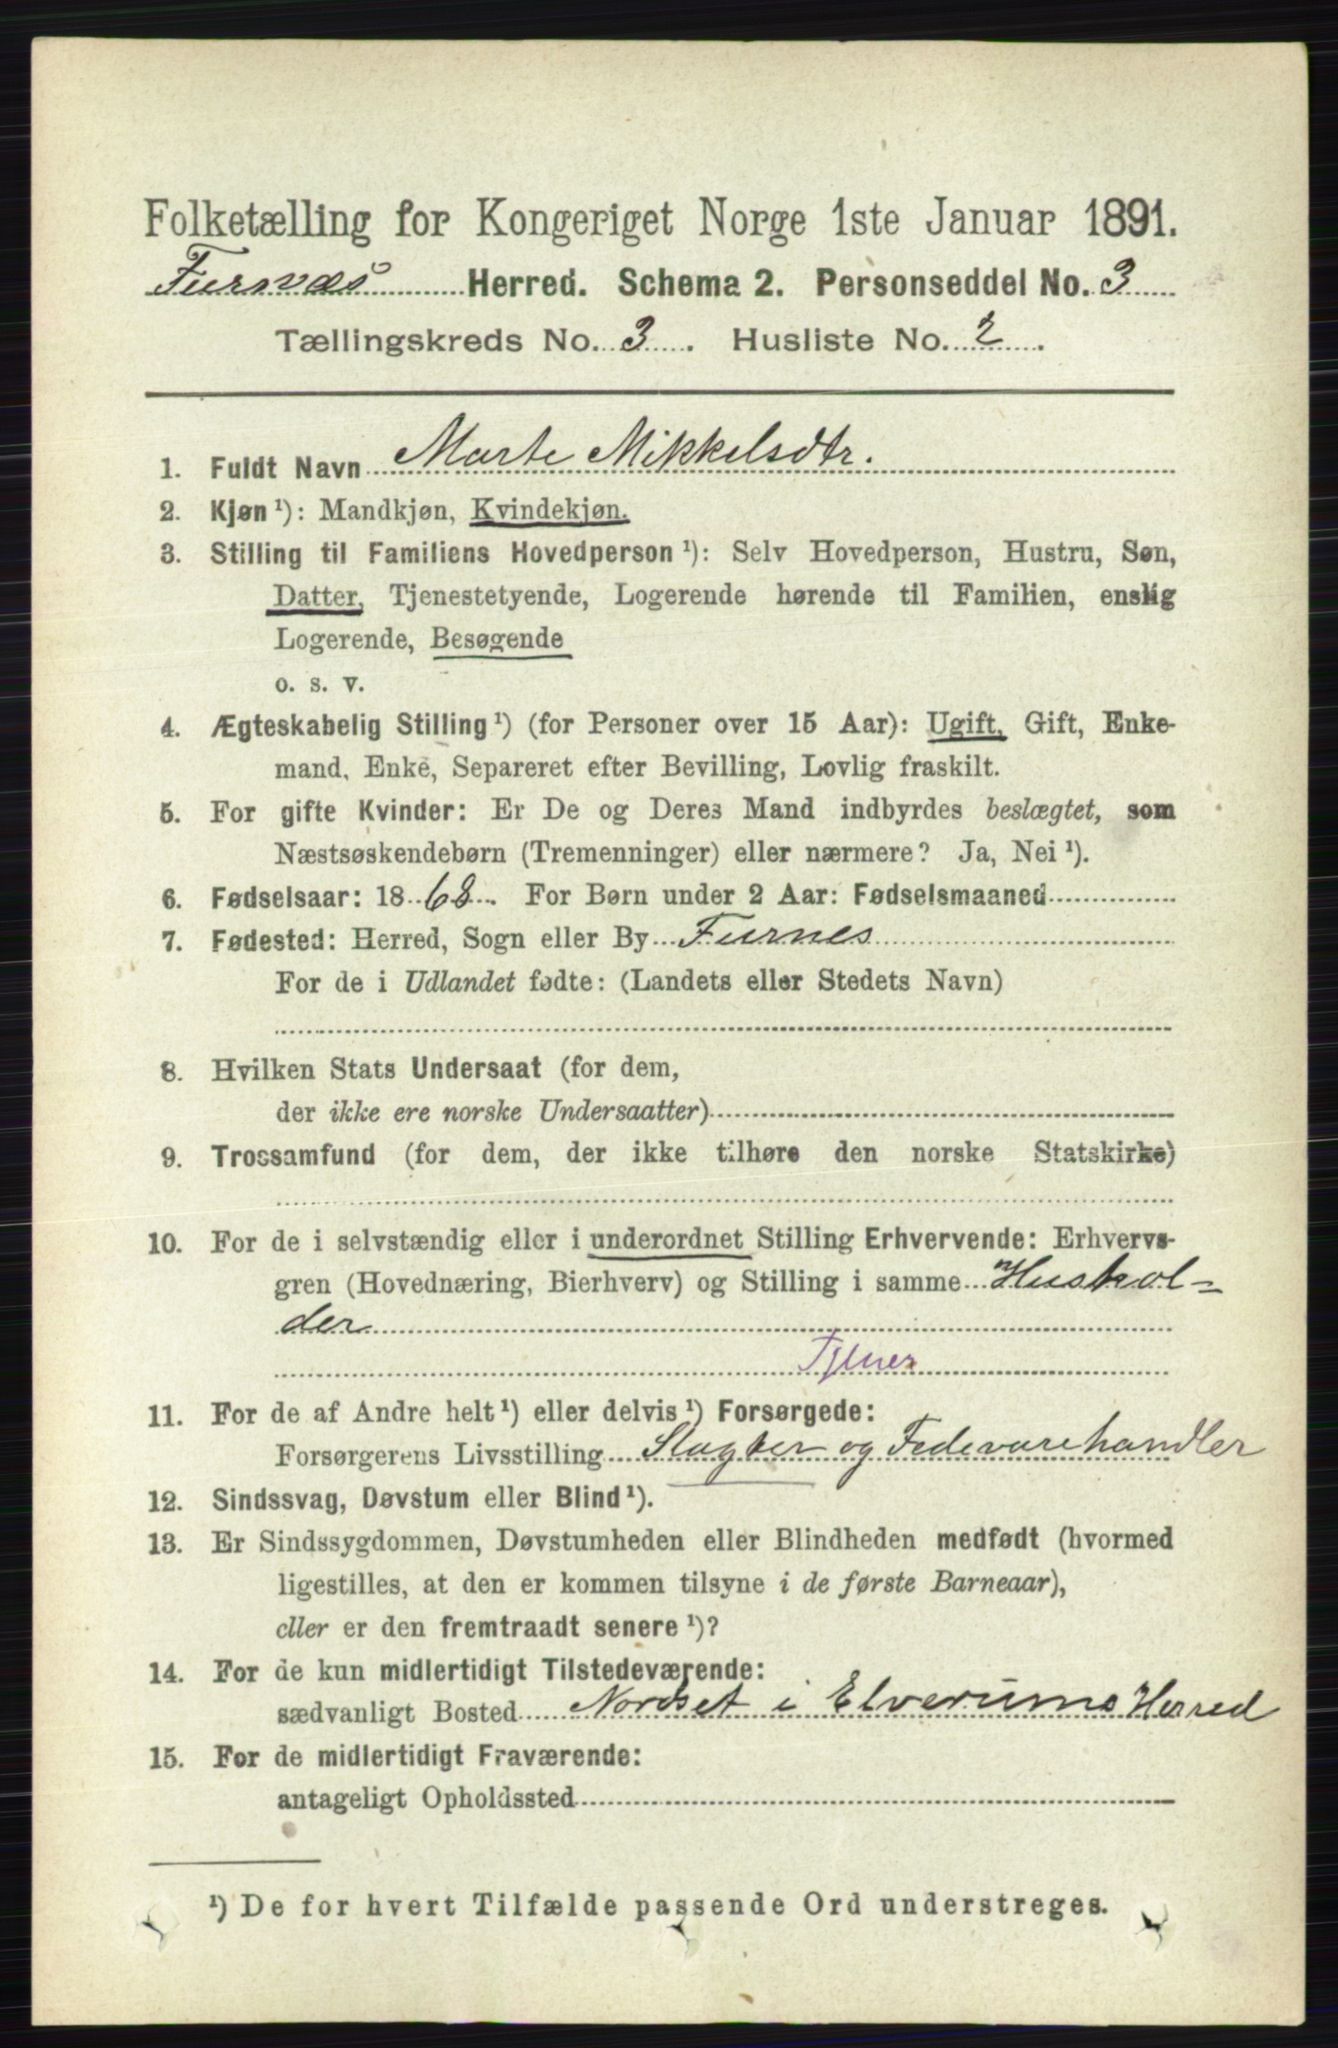 Folketælling for Kongeriget Norge 1ste Januar 1891.
Furnæs Herred. Schema 2. Personseddel No. 3
Tællingskreds No. 3. Husliste No. 2.
1. Fuldt Navn Marte Mikkelsdtr.
2. Kjøn ¹): Mandkjøn, Kvindekjøn.
3. Stilling til Familiens Hovedperson ¹): Selv Hovedperson, Hustru, Søn,
Datter, Tjenestetyende, Logerende hørende til Familien, enslig
Logerende, Besøgende
o. s. v.
4. Ægteskabelig Stilling ¹) (for Personer over 15 Aar): Ugift, Gift, Enke-
mand, Enke, Separeret efter Bevilling, Lovlig fraskilt.
5. For gifte Kvinder: Er De og Deres Mand indbyrdes beslægtet, som
Næstsøskendebørn (Tremenninger) eller nærmere? Ja, Nei ¹).
6. Fødselsaar: 1868. For Børn under 2 Aar: Fødselsmaaned
7. Fødested: Herred, Sogn eller By Furnes
For de i Udlandet fødte: (Landets eller Stedets Navn)
8. Hvilken Stats Undersaat (for dem,
der ikke ere norske Undersaatter)
9. Trossamfund (for dem, der ikke tilhøre den norske Statskirke)
10. For de i selvstændig eller i underordnet Stilling Erhvervende: Erhvervs-
gren (Hovednæring, Bierhverv) og Stilling i samme Hushol-
der
Tjener
11. For de af Andre helt ¹) eller delvis ¹) Forsørgede:
Forsørgerens Livsstilling Slagter og Fedevarehandler
12. Sindssvag, Døvstum eller Blind ¹).
13. Er Sindssygdommen, Døvstumheden eller Blindheden medfødt (hvormed
ligestilles, at den er kommen tilsyne i de første Barneaar),
eller er den fremtraadt senere ¹)?
14. For de kun midlertidigt Tilstedeværende:
sædvanligt Bosted Nordset i Elverums Herred
15. For de midlertidigt Fraværende:
antageligt Opholdssted
¹) De for hvert Tilfælde passende Ord understreges.